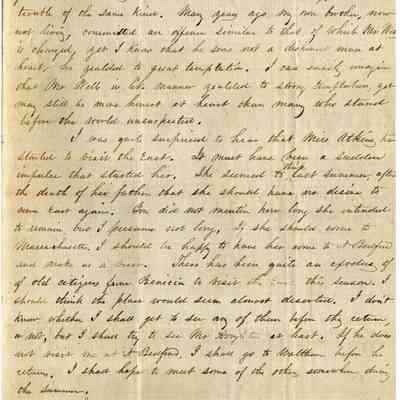 trouble of the same kind. Many years ago, my own brother, now
not living, committed an offence similar to that of which Mr Wells
is charged, yet I know that he was not a dishonest man at
heart, he yielded to great temptation. I can easily imagine
that Mr Wells in like manner yielded to strong temptation, yet
may still be more honest at heart than many who stand
before the world unsuspected.
I was quite surprised to hear that Miss Atkins had
started to visit the East. It must have been a sudden
impulse that started her. She seemed to last summer, after
the death of her father that she should have no desire to
come East again. You did not mention how long she intended
to remain but I presume not long. If she should come to
Massachusetts, I should be happy to have her come to N Bedford
and make us a visit. There has been quite an exodus of
of old citizens from Benicia to visit the East this season. I
should think the place would seem almost deserted. I don't
know whether I shall get to see any of them before they return,
or not, but I shall try to see Mr at least. If he does
not meet me at N Bedford, I shall go to Waltham before he
returns. I shall hope to meet some of the others somewhere during
the summer.